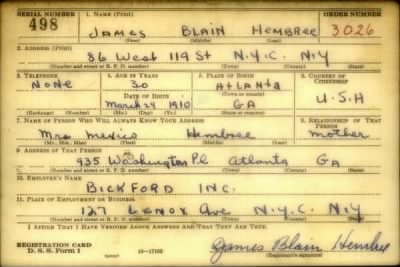 SERIAL NUMBER 1. NAME (Print) ORDER NUMBER
498 JAMES BLAIN HEMBREE 3026
(First) (Middle) (Last)
2. ADDRESS (Print)
86 West 119 St N.Y.C. N.Y
(Number and street or R. F. D. number) (Town) (County) (State)
3. TELEPHONE 4. AGE IN YEARS 5. PLACE OF BIRTH 6. COUNTRY OF CITIZENSHIP
NONE 30 ATLANTA
DATE OF BIRTH (Town or county)
March 24 1910 GA U.S.A
(Exchange) (No.) (Mo.) (Day) (Yr.) (State or country)
7. NAME OF PERSON WHO WILL ALWAYS KNOW YOUR ADDRESS 8. RELATIONSHIP OF THAT PERSON
Mrs Mexico Hembree mother
(Mr., Mrs., Miss) (First) (Middle) (Last)
9. ADDRESS OF THAT PERSON
935 Washington Pl Atlanta GA
(Number and street or R. F. D. number) (Town) (County) (State)
10. EMPLOYER'S NAME
BICKFORD INC.
11. PLACE OF EMPLOYMENT OR BUSINESS
127 LENOX Ave N.Y.C. N.Y
(Number and street or R. F. D. number) (Town) (County) (State)
I AFFIRM THAT I HAVE VERIFIED ABOVE ANSWERS AND THAT THEY ARE TRUE.
REGISTRATION CARD
D. S. S. Form 1 James Blain Hembree
(Registrant's signature)